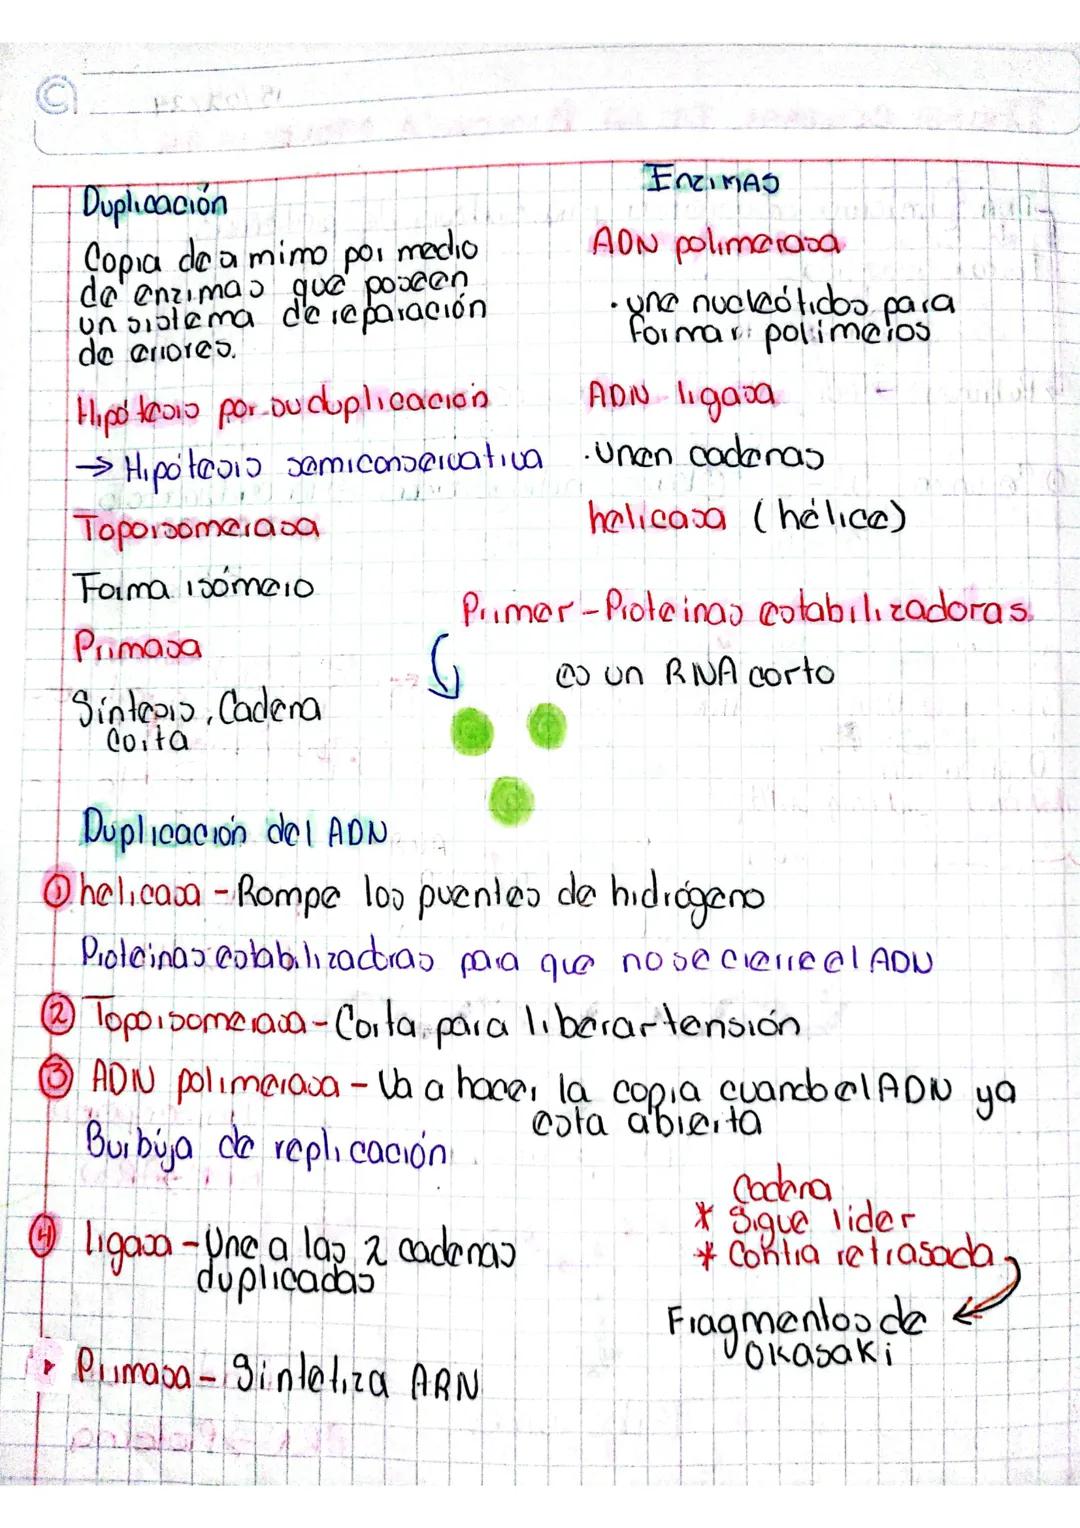 Duplicación
Copia de a mimo por medio
de enzimas que poseen
un sistema de reparación
de errores.
Hipótesis por su duplicación
→ Hipótesis semiconservativa
Topoisomerasa
Forma isómero
Primasa
Síntesis, Cadena
corta
Enzimas
ADN polimerasa
· une nucleótidos para
formar polimeros
ADN ligasa
· Unen cadenas
helicasa (hélice)
Primer - Proteinas estabilizadoras
es un RNA corto
Duplicación del ADN
① helicasa - Rompe los puentes de hidrógeno
Proteinas estabilizadoras para que no se cierre el ADN
② Topoisomerasa - Corta para liberar tensión
③ ADN polimerasa - Va a hacer la copia cuando el ADN ya
esta abierta
Burbúja de replicación
④ ligasa - Une a las 2 cadenas
duplicadas
Cadena
* Sigue lider
* Contra retrasada
Fragmentos de
Okasaki
· Primasa - Sintetiza ARN